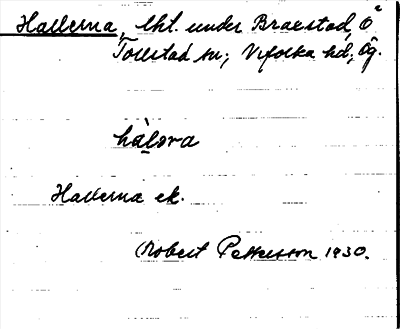 Hallerna, lht. under Braestad, Ö
Tollstad sn; Vifolka hd; Ög.
hàlɘra
Hallerna ek.
Robert Pettersson 1930.